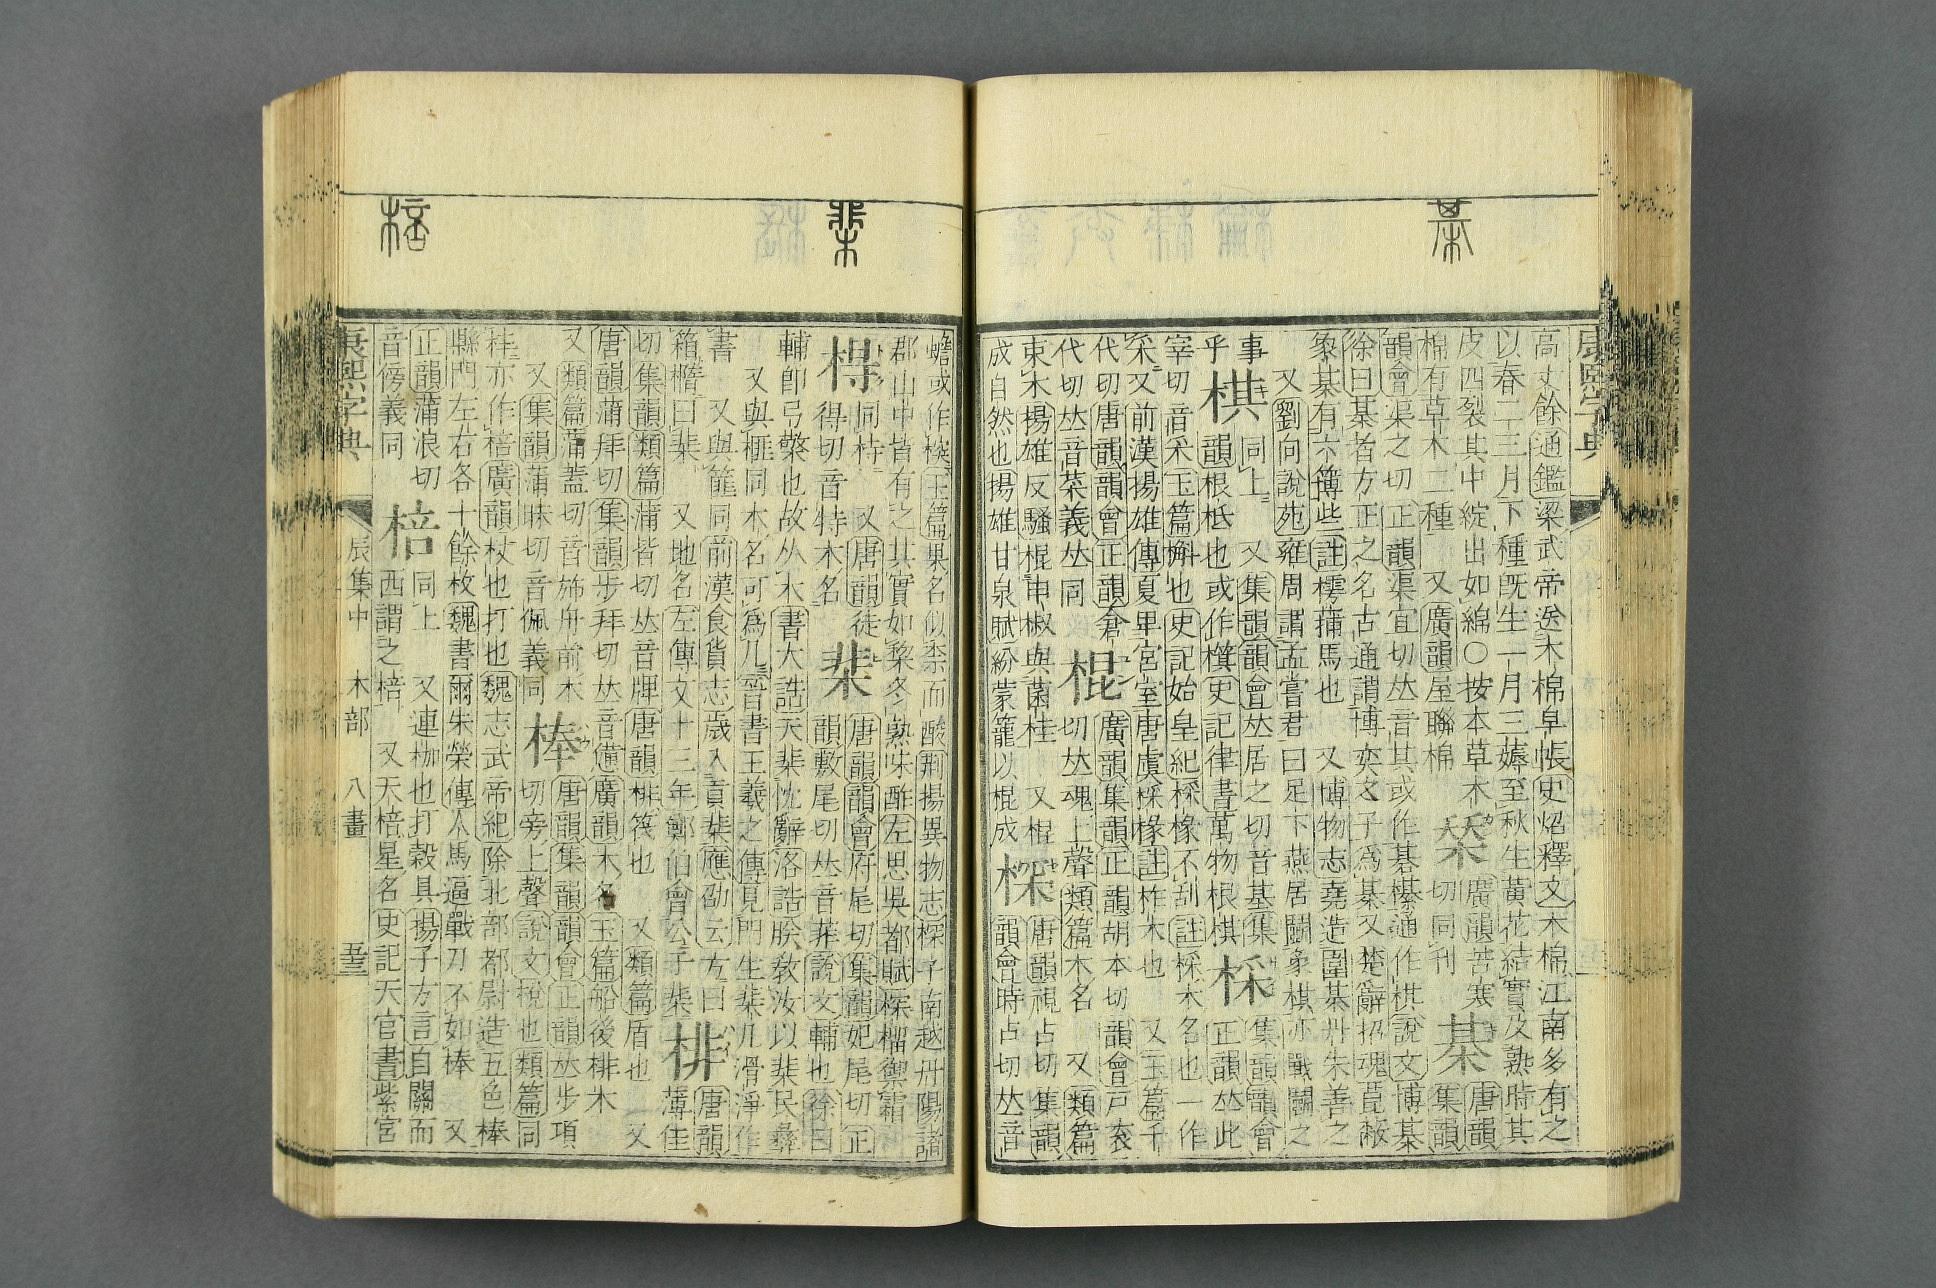 棊
康熙字典
高丈餘通鑑梁武帝送木棉皁帳史炤釋文木棉江南多有之
以春二三月下種旣生一月三薅至秋生黃花結實及熟時其
皮四裂其中綻出如綿○按本草木
棉有草木二種 又廣韻屋聯棉
栞
廣韻苦寒
切同刊
棊
唐韻
集韻
韻會渠之切正韻渠宜切𠀤音其或作碁櫀通作棋說文博棊
徐曰棊者方正之名古通謂博奕之子爲棊又楚辭招魂菎蔽
象棊有六簙些註樗蒱馬也 又博物志堯造圍棊丹朱善之
又劉向說苑雍周謂孟嘗君曰足下燕居鬭象棋亦戰鬭之
事
乎
棋
同上 又集韻韻會𠀤居之切音基集
韻根柢也或作櫀史記律書萬物根棋
棌
集韻韻會
正韻𠀤此
宰切音采玉篇槲也史記始皇紀棌椽不刮註棌木名也一作
采又前漢揚雄傳夏𤰞宮室唐虞棌椽註柞木也 又玉篇千
代切唐韻韻會正韻倉
代切𠀤音菜義𠀤同
棍
廣韻集韻正韻胡本切韻會戸衮
切𠀤魂上聲類篇木名 又類篇
束木揚雄反騷棍申椒與菌桂 又棍
成自然也揚雄甘泉賦紛蒙籠以棍成
棎
唐韻視占切集韻
韻會時占切𠀤音
棐
棓
蟾或作棪玉篇果名似柰而酸荆揚異物志棎子南越丹陽諸
郡山中皆有之其實如棃冬熟味酢左思吳都賦棎榴禦霜
棏
同㭙 又唐韻徒
得切音特木名
棐
唐韻韻會府尾切集韻妃尾切正
韻敷尾切𠀤音菲說文輔也徐曰
輔卽弓檠也故从木書大誥天棐忱辭洛誥朕敎汝以棐民彝
又與榧同木名可爲几晉書王羲之傳見門生棐几滑淨作
書 又與篚同前漢食貨志歲入貢棐應劭云方曰
箱橢曰棐 又地名左傳文十三年鄭伯會公于棐
棑
唐韻
薄佳
切集韻類篇蒲皆切𠀤音牌唐韻棑筏也 又類篇盾也 又
唐韻蒲拜切集韻步拜切𠀤音憊廣韻木名玉篇船後棑木
又類篇蒲蓋切音斾舟前木
又集韻蒲昧切音佩義同
棒
唐韻集韻韻會正韻𠀤步項
切旁上聲說文梲也類篇同
亦作棓廣韻杖也打也魏志武帝紀除北部都尉造五色棒
縣門左右各十餘枚魏書爾朱榮傳人馬逼戰刀不如棒 又
正韻蒲浪切
音傍義同
棓
同上 又連枷也打榖具揚子方言自關而
西謂之棓 又天棓星名史記天官書紫宮
康熙字典 辰集中 木部 八畫